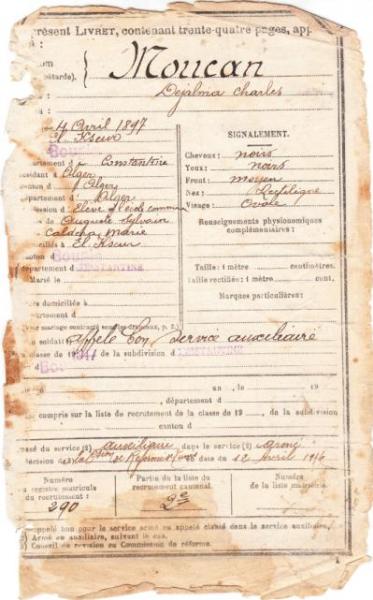 présent LIVRET, contenant trente-quatre pages, app
Moucan
Dejalma Charles
4 Avril 1897
El Kseur
Boug
à Constantine
résidant à Alger
canton d Alger
département d Alger
profession d élève école
de Auguste Sylvain
Marie
domiciliés à El Kseur
canton d Bougie
département d CONSTANTINE
Marié le
SIGNALEMENT.
Cheveux : noirs
Yeux : noirs
Front : moyen
Nez : Rectiligne
Visage : Ovale
Renseignements physionomiques
complémentaires :
Taille : 1 mètre centimètres.
Taille rectifiée : 1 mètre cent.
Marques particulières :
domiciliée à
soldat appelé bon service auxiliaire
classe de 1917 de la subdivision d CONSTANTINE
Boug
le 19
, département d
compris sur la liste de recrutement de la classe de 19 , de la subdivision
canton d
passé du service (2) auxiliaire dans le service (2) armé
décision du 12 Avril 1916
Numéro
registre matricule
du recrutement :
290
Partie de la liste du
recrutement cantonal.
2e
Numéro
de la liste matricule.
appelé bon pour le service armé ou appelé classé dans le service auxiliaire.
Armé ou auxiliaire, suivant le cas.
Conseil de revision ou Commission de réforme.